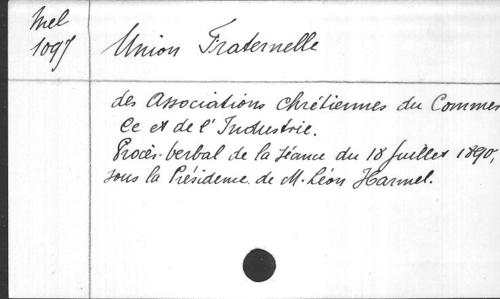 Mel
1097
Union Fraternelle
des Associations Chrétiennes du Commer
ce et de l'Industrie.
Procès-verbal de la séance du 18 Juillet 1890,
sous la Présidence de M. Léon Harmel.